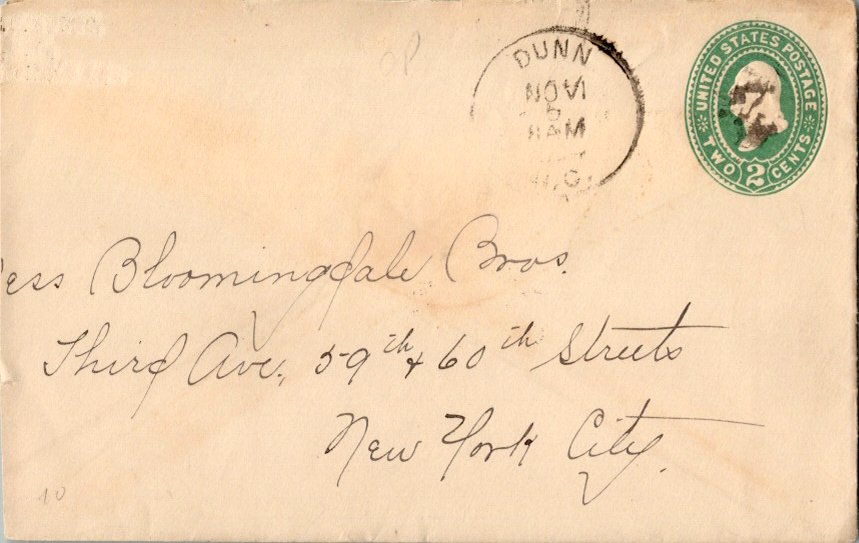 DUNN
NOV
8 AM
UNITED STATES POSTAGE
TWO 2 CENTS
ess Bloomingdale Bros.
Third Ave., 59th & 60th Streets
New York City.
10